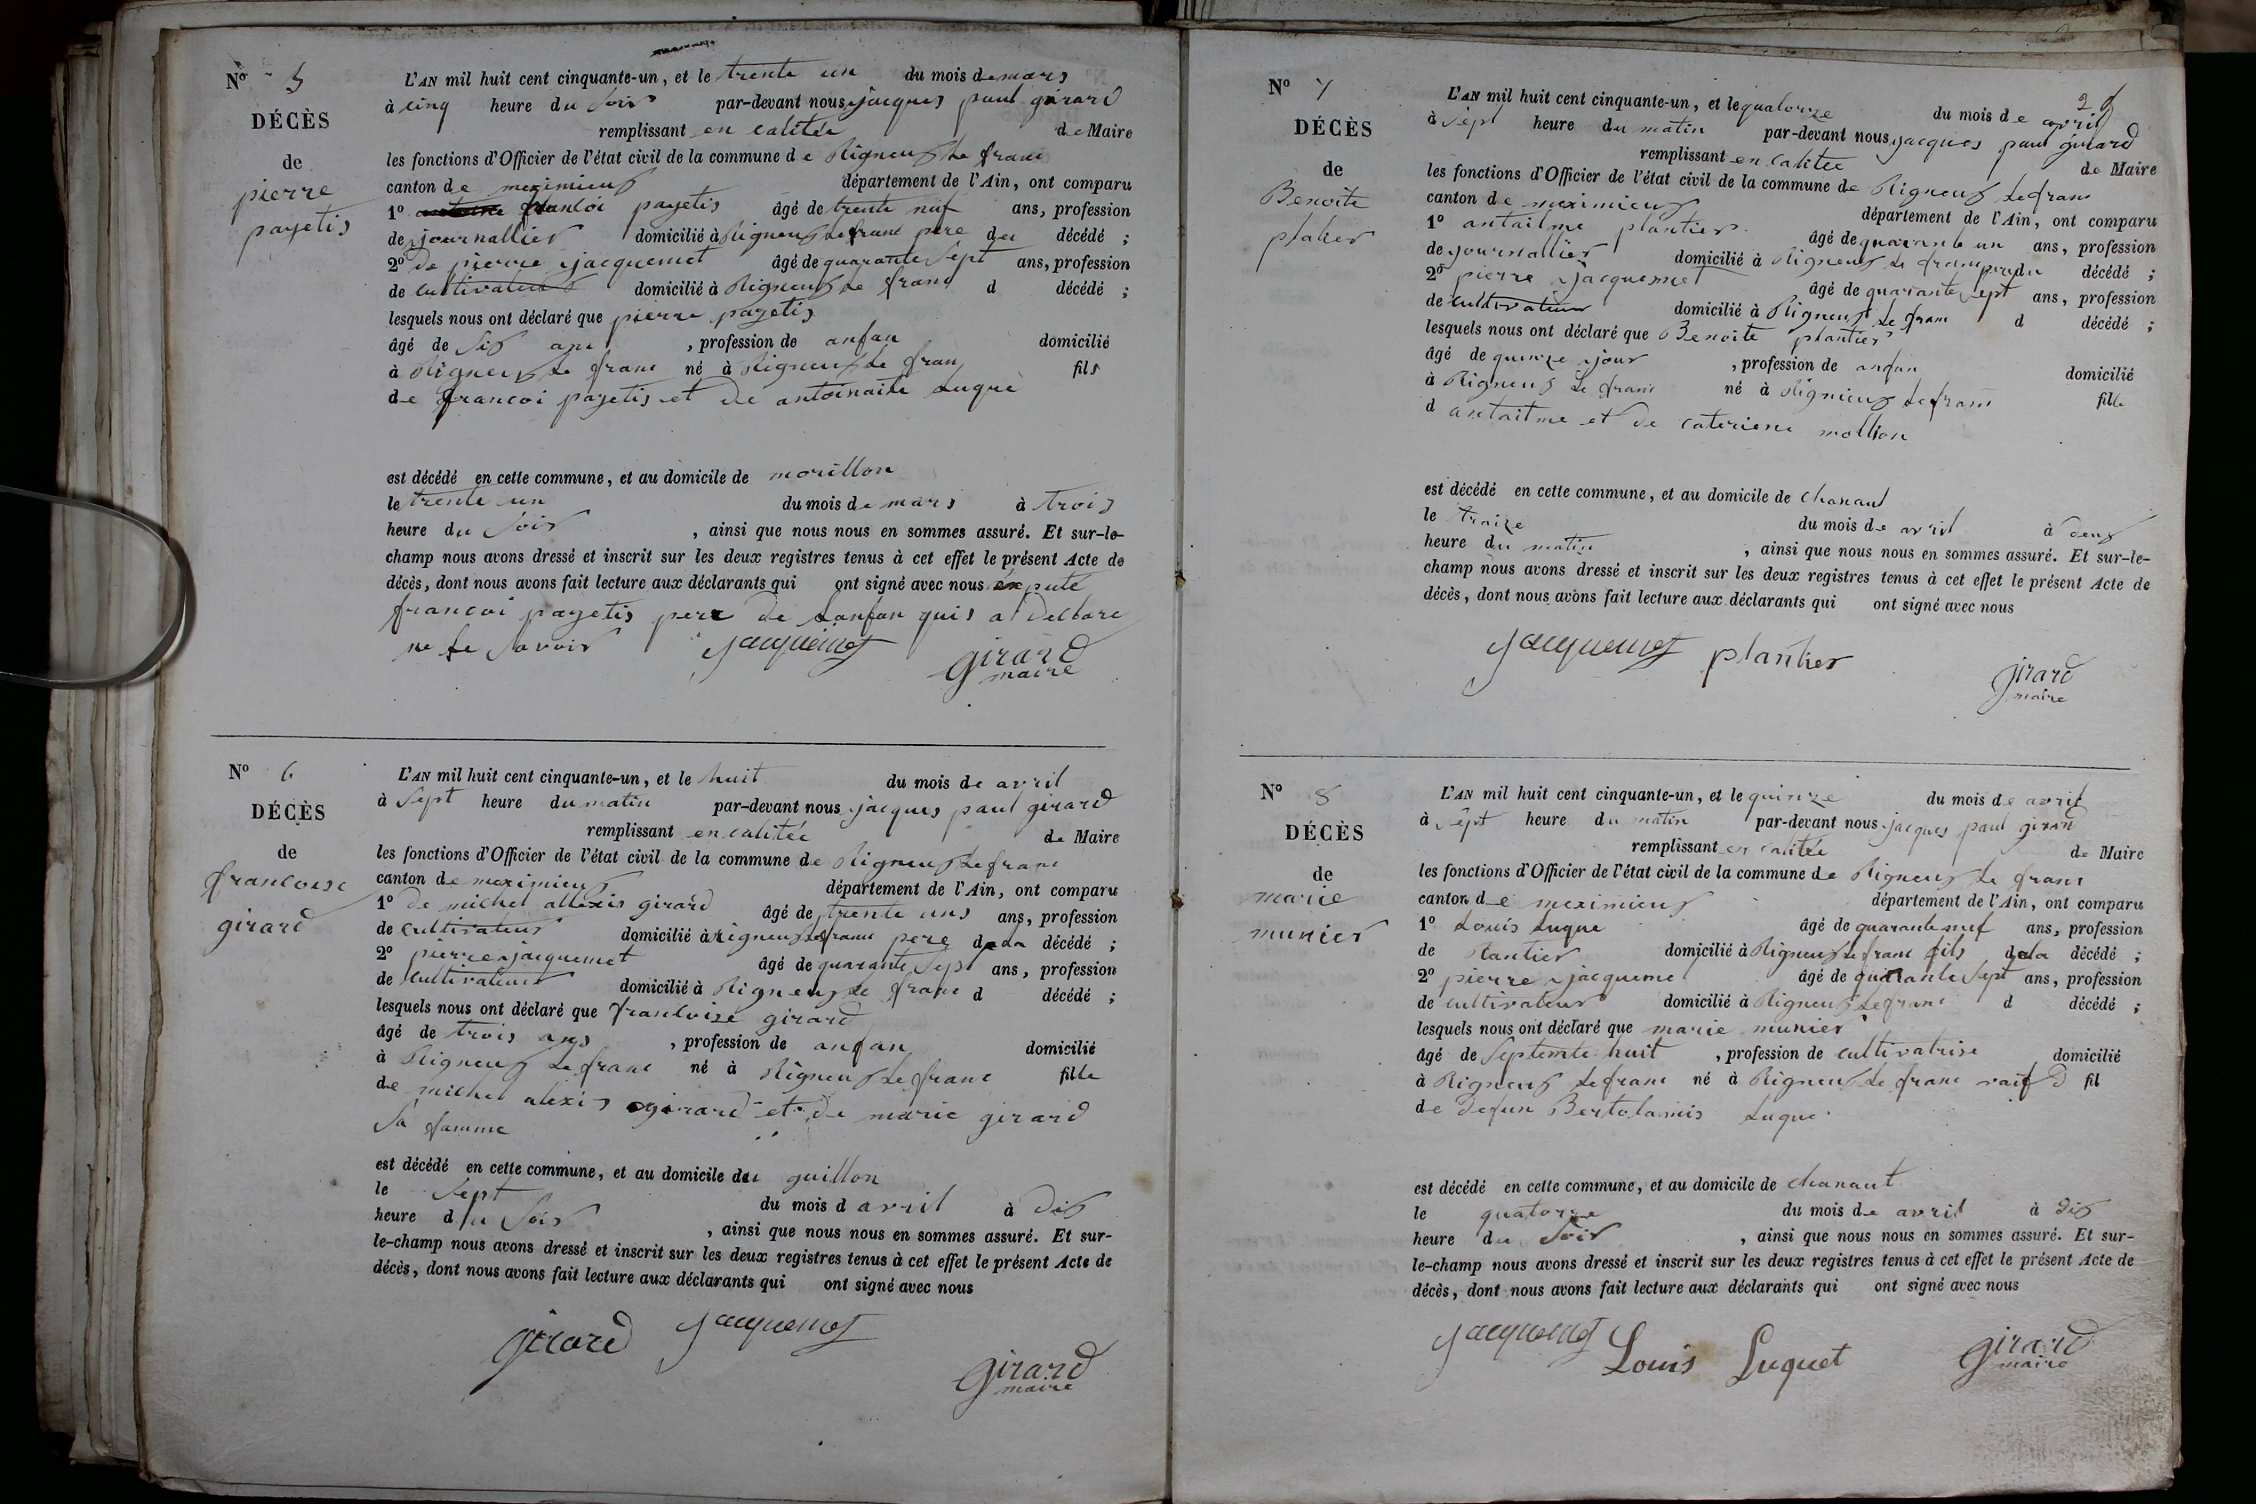 Nº 5
DÉCÈS
de
pierre
payetis
L'AN mil huit cent cinquante-un, et le trente un du mois de mars
à cinq heure du soir par-devant nous jacques paul girard
remplissant en calitée de Maire
les fonctions d'Officier de l'état civil de la commune de Rigneux Le franc
canton de meximieux département de l'Ain, ont comparu
1º francoi payetis âgé de trente nuf ans, profession
de journallier domicilié à Rigneux Le franc pere du décédé ;
2º de pierre jacquemet âgé de quarante sept ans, profession
de cultivateur domicilié à Rigneux Le franc d décédé ;
lesquels nous ont déclaré que pierre payetis
âgé de six ans, profession de anfan domicilié
à Rigneux Le franc né à Rigneux Le franc fils
de francoi payetis et de antoinaite Luque
est décédé en cette commune, et au domicile de morillon
le trente un du mois de mars à trois
heure du soir, ainsi que nous nous en sommes assuré. Et sur-le-
champ nous avons dressé et inscrit sur les deux registres tenus à cet effet le présent Acte de
décès, dont nous avons fait lecture aux déclarants qui ont signé avec nous
francoi payetis pere de Lanfan quis a delbare
ne le savoir jacquemet girard
maire
Nº 6
DÉCÈS
de
francoise
girard
L'AN mil huit cent cinquante-un, et le huit du mois de avril
à sept heure du matin par-devant nous jacques paul girard
remplissant en calitée de Maire
les fonctions d'Officier de l'état civil de la commune de Rigneux Le franc
canton de meximieux département de l'Ain, ont comparu
1º de michel allexis girard âgé de trente uns ans, profession
de cultivateur domicilié à Rigneux Le franc pere de la décédé ;
2º pierre jacquemet âgé de quarante sept ans, profession
de cultivateur domicilié à Rigneux Le franc d décédé ;
lesquels nous ont déclaré que francoise girard
âgé de trois ans, profession de anfan domicilié
à Rigneux Le franc né à Rigneux Le franc fille
de michel alexis girard et de marie girard
sa famme
est décédé en cette commune, et au domicile du guillon
le sept du mois d avril à dix
heure du soir, ainsi que nous nous en sommes assuré. Et sur-
le-champ nous avons dressé et inscrit sur les deux registres tenus à cet effet le présent Acte de
décès, dont nous avons fait lecture aux déclarants qui ont signé avec nous
girard jacquemet
girard
maire
2
Nº 7
DÉCÈS
de
Benoite
platier
L'AN mil huit cent cinquante-un, et le quatorze du mois de avril
à sept heure du matin par-devant nous jacques paul girard
remplissant en calitée de Maire
les fonctions d'Officier de l'état civil de la commune de Rigneux Le franc
canton de meximieux département de l'Ain, ont comparu
1º antailme plantier âgé de quarante un ans, profession
de journallier domicilié à Rigneux Le franc pere du décédé ;
2º pierre jacquemet âgé de quarante sept ans, profession
de cultivateur domicilié à Rigneux Le franc d décédé ;
lesquels nous ont déclaré que Benoite plantier
âgé de quinze jour, profession de anfan domicilié
à Rigneux Le franc né à Rignieux Le franc fille
d antailme et de cateriene mollion
est décédé en cette commune, et au domicile de chanaut
le traize du mois de avril à deux
heure du matin, ainsi que nous nous en sommes assuré. Et sur-le-
champ nous avons dressé et inscrit sur les deux registres tenus à cet effet le présent Acte de
décès, dont nous avons fait lecture aux déclarants qui ont signé avec nous
jacquemet plantier girard
maire
Nº 8
DÉCÈS
de
marie
munier
L'AN mil huit cent cinquante-un, et le quinze du mois de avril
à sept heure du matin par-devant nous jacques paul girard
remplissant en calitée de Maire
les fonctions d'Officier de l'état civil de la commune de Rigneux Le franc
canton de meximieux département de l'Ain, ont comparu
1º Louis Luque âgé de quarante nuf ans, profession
de domicilié à Rigneux Le franc fils de la décédé ;
2º pierre jacqueme âgé de quarante sept ans, profession
de cultivateur domicilié à Rigneux Le franc d décédé ;
lesquels nous ont déclaré que marie munier
âgé de septente huit, profession de cultivatrise domicilié
à Rigneux Le franc né à Rigneux Le franc fil
de defun Bertolamis Luque
est décédé en cette commune, et au domicile de chanaut
le quatorze du mois de avril à dix
heure du soir, ainsi que nous nous en sommes assuré. Et sur-
le-champ nous avons dressé et inscrit sur les deux registres tenus à cet effet le présent Acte de
décès, dont nous avons fait lecture aux déclarants qui ont signé avec nous
jacquemet Louis Luquet girard
maire